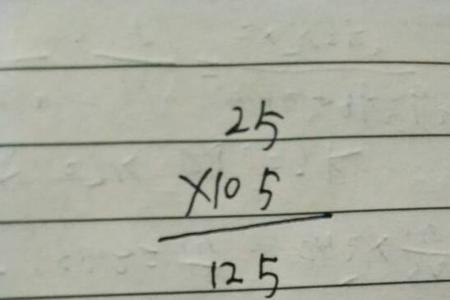 25
×105
125